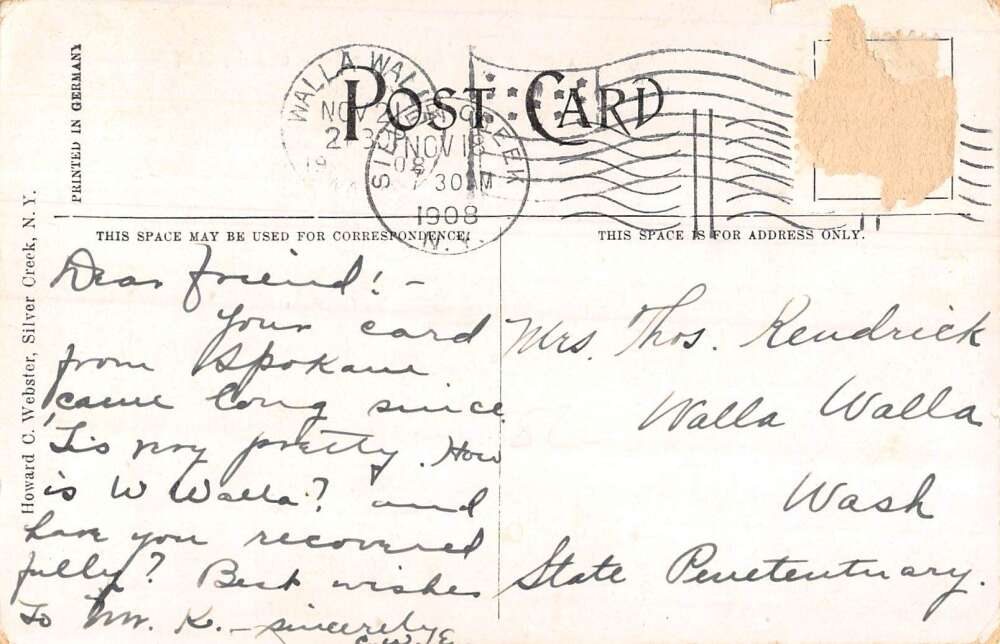 PRINTED IN GERMANY
Howard C. Webster, Silver Creek, N. Y.
POST CARD
WALLA WALLA
NOV 21
2-30P
1908
SILVER CREEK
NOV 16
7 30AM
1908
N.Y.
THIS SPACE MAY BE USED FOR CORRESPONDENCE.
THIS SPACE IS FOR ADDRESS ONLY.
Dear friend! -
Your card
from Spokane
came long since.
'Tis very pretty. How
is W Walla? and
have you recovered
fully? Best wishes
To Mr. K. - sincerely
Mrs. Thos. Kendrick
Walla Walla
Wash
State Penetentuary.